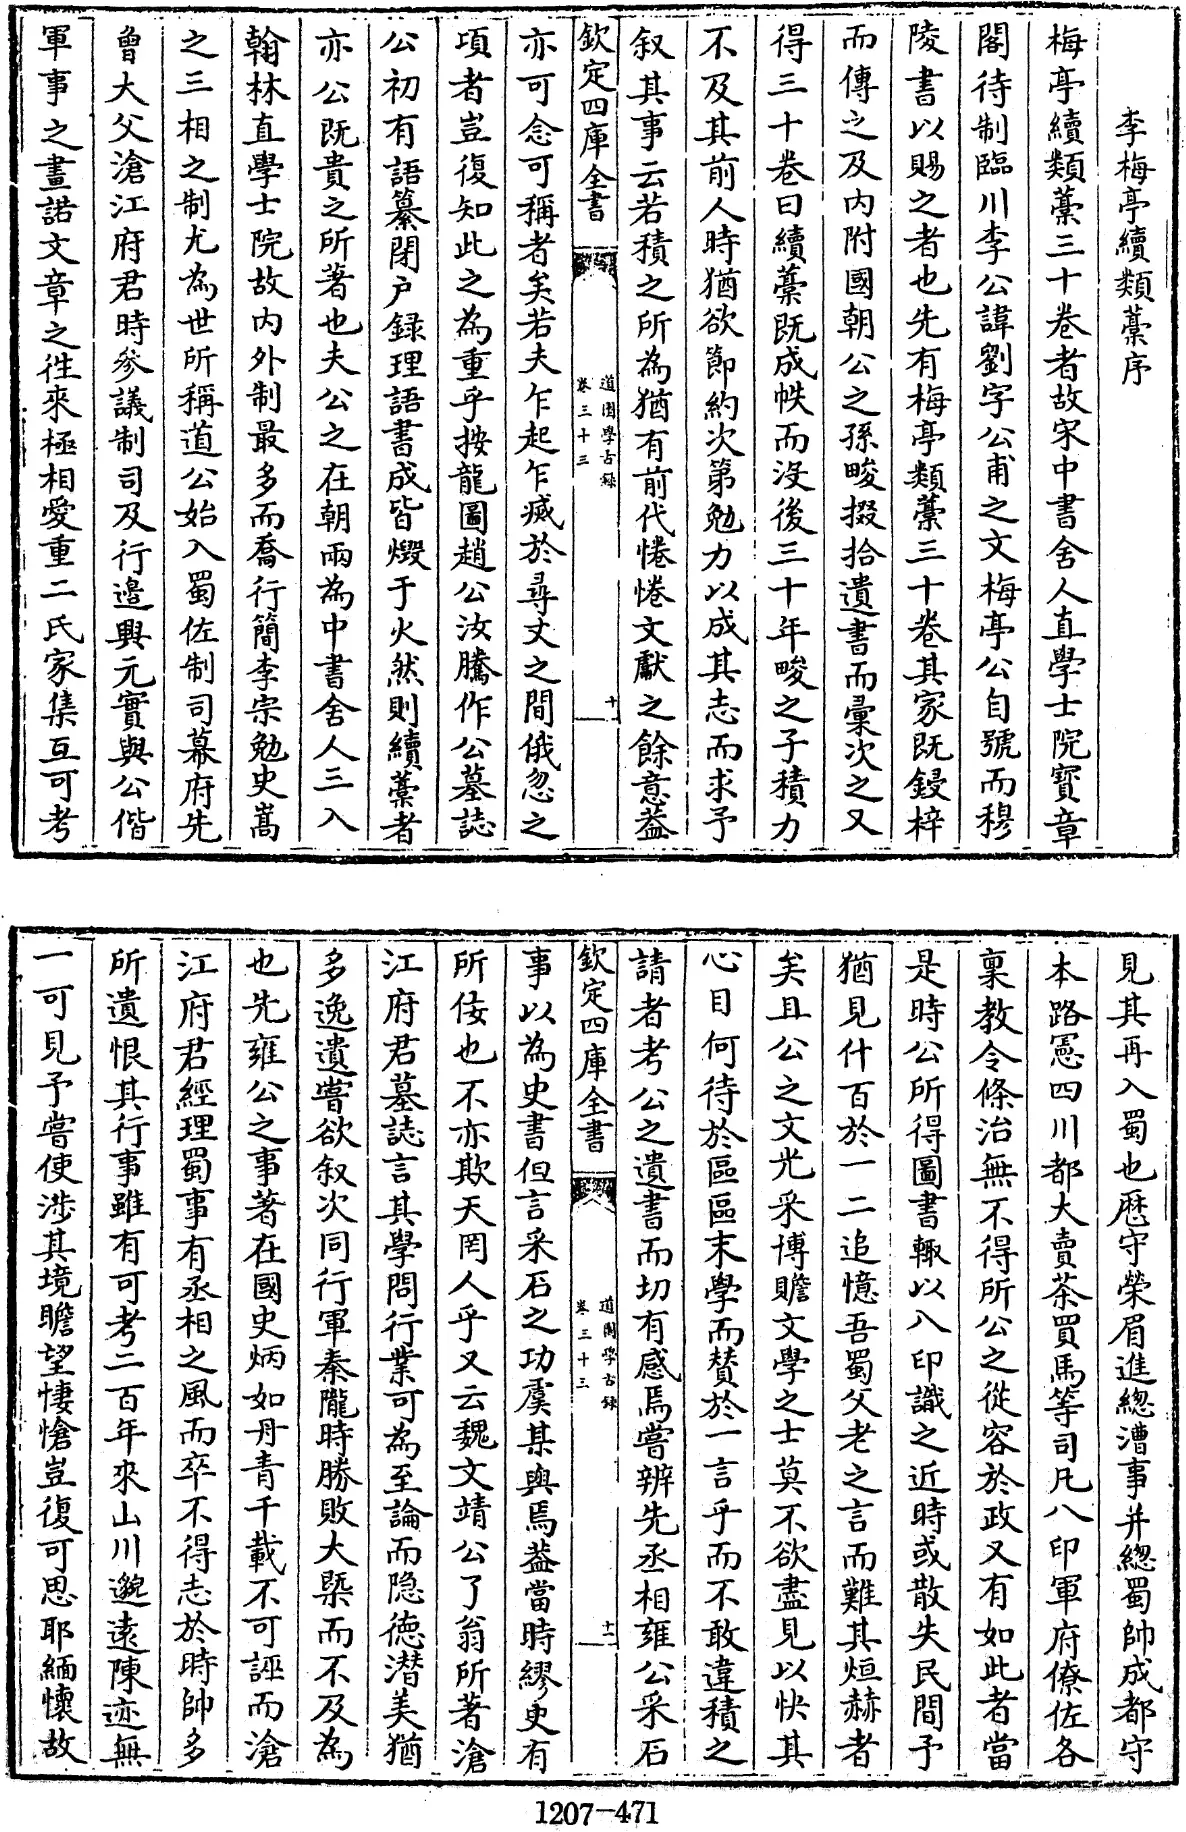 李梅亭續類藁序
梅亭續類藁三十卷者故宋中書舍人直學士院寳章
閣待制臨川李公諱劉字公甫之文梅亭公自號而穆
陵書以賜之者也先有梅亭類藁三十卷其家既鋟梓
而傳之及内附國朝公之孫畯掇拾遺書而彚次之又
得三十卷曰續藁既成帙而没後三十年畯之子積力
不及其前人時猶欲節約次第勉力以成其志而求予
叙其事云若積之所為猶有前代惓惓文獻之餘意葢
欽定四庫全書
道園學古録
卷三十三
十
亦可念可稱者矣若夫乍起乍㓕於尋丈之間俄忽之
項者豈復知此之為重乎按龍圖趙公汝騰作公墓誌
公初有語纂閉户録理語書成皆燬于火然則續藁者
亦公既貴之所著也夫公之在朝兩為中書舍人三入
翰林直學士院故内外制最多而喬行簡李宗勉史嵩
之三相之制尤為世所稱道公始入蜀佐制司幕府先
曾大父滄江府君時參議制司及行邉興元實與公偕
軍事之畫諾文章之徃來極相愛重二氏家集互可考
見其再入蜀也歴守榮眉進總漕事并總蜀帥成都守
本路憲四川都大賣茶買馬等司凡八印軍府僚佐各
稟教令條治無不得所公之從容於政又有如此者當
是時公所得圖書輙以八印識之近時或散失民間予
猶見什百於一二追憶吾蜀父老之言而難其烜赫者
矣且公之文光采博贍文學之士莫不欲盡見以快其
心目何待於區區末學而賛於一言乎而不敢違積之
請者考公之遺書而切有感焉嘗辨先丞相雍公采石
欽定四庫全書
道園學古録
卷三十三
十一
事以為史書但言采石之功虞某與焉葢當時繆史有
所佞也不亦欺天罔人乎又云魏文靖公了翁所著滄
江府君墓誌言其學問行業可為至論而隐德潜美猶
多逸遺嘗欲叙次同行軍秦隴時勝敗大槩而不及為
也先雍公之事著在國史炳如丹青千載不可誣而滄
江府君經理蜀事有丞相之風而卒不得志於時帥多
所遺恨其行事雖有可考二百年來山川邈逺陳迹無
一可見予嘗使涉其境瞻望悽愴豈復可思耶緬懷故
1207-471